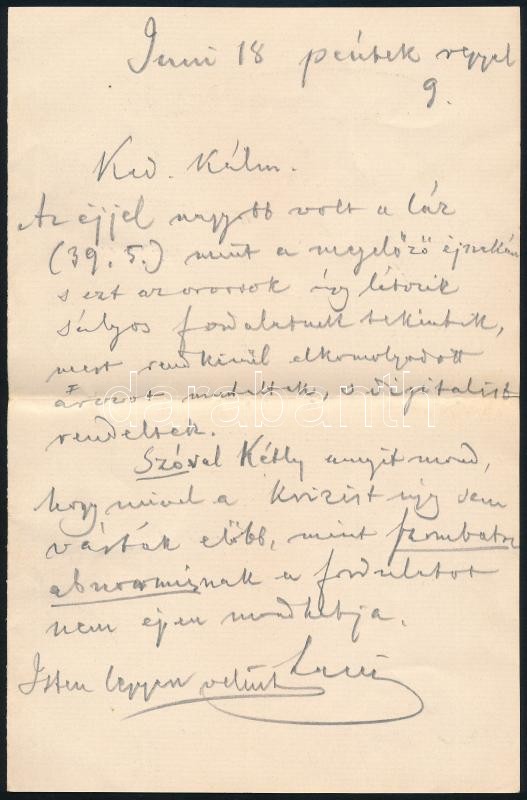 Juni 18 péntek reggel
9.
Ked. Kálm.
Az éjjel nagyobb volt a láz
(39.5.) mint a megelőző éjszakán
s ezt az orvosok úgy látszik
súlyos fordulatnak tekintik,
mert rendkívül elkomolyodott
arczot mutattak, s digitalist
rendeltek.
Szóval Kétly annyit mond,
hogy mivel a krizist úgy sem
várták előbb, mint szombatra
abnormisnak a fordulatot
nem éjen mondhatja.
Isten legyen velünk
darabanth